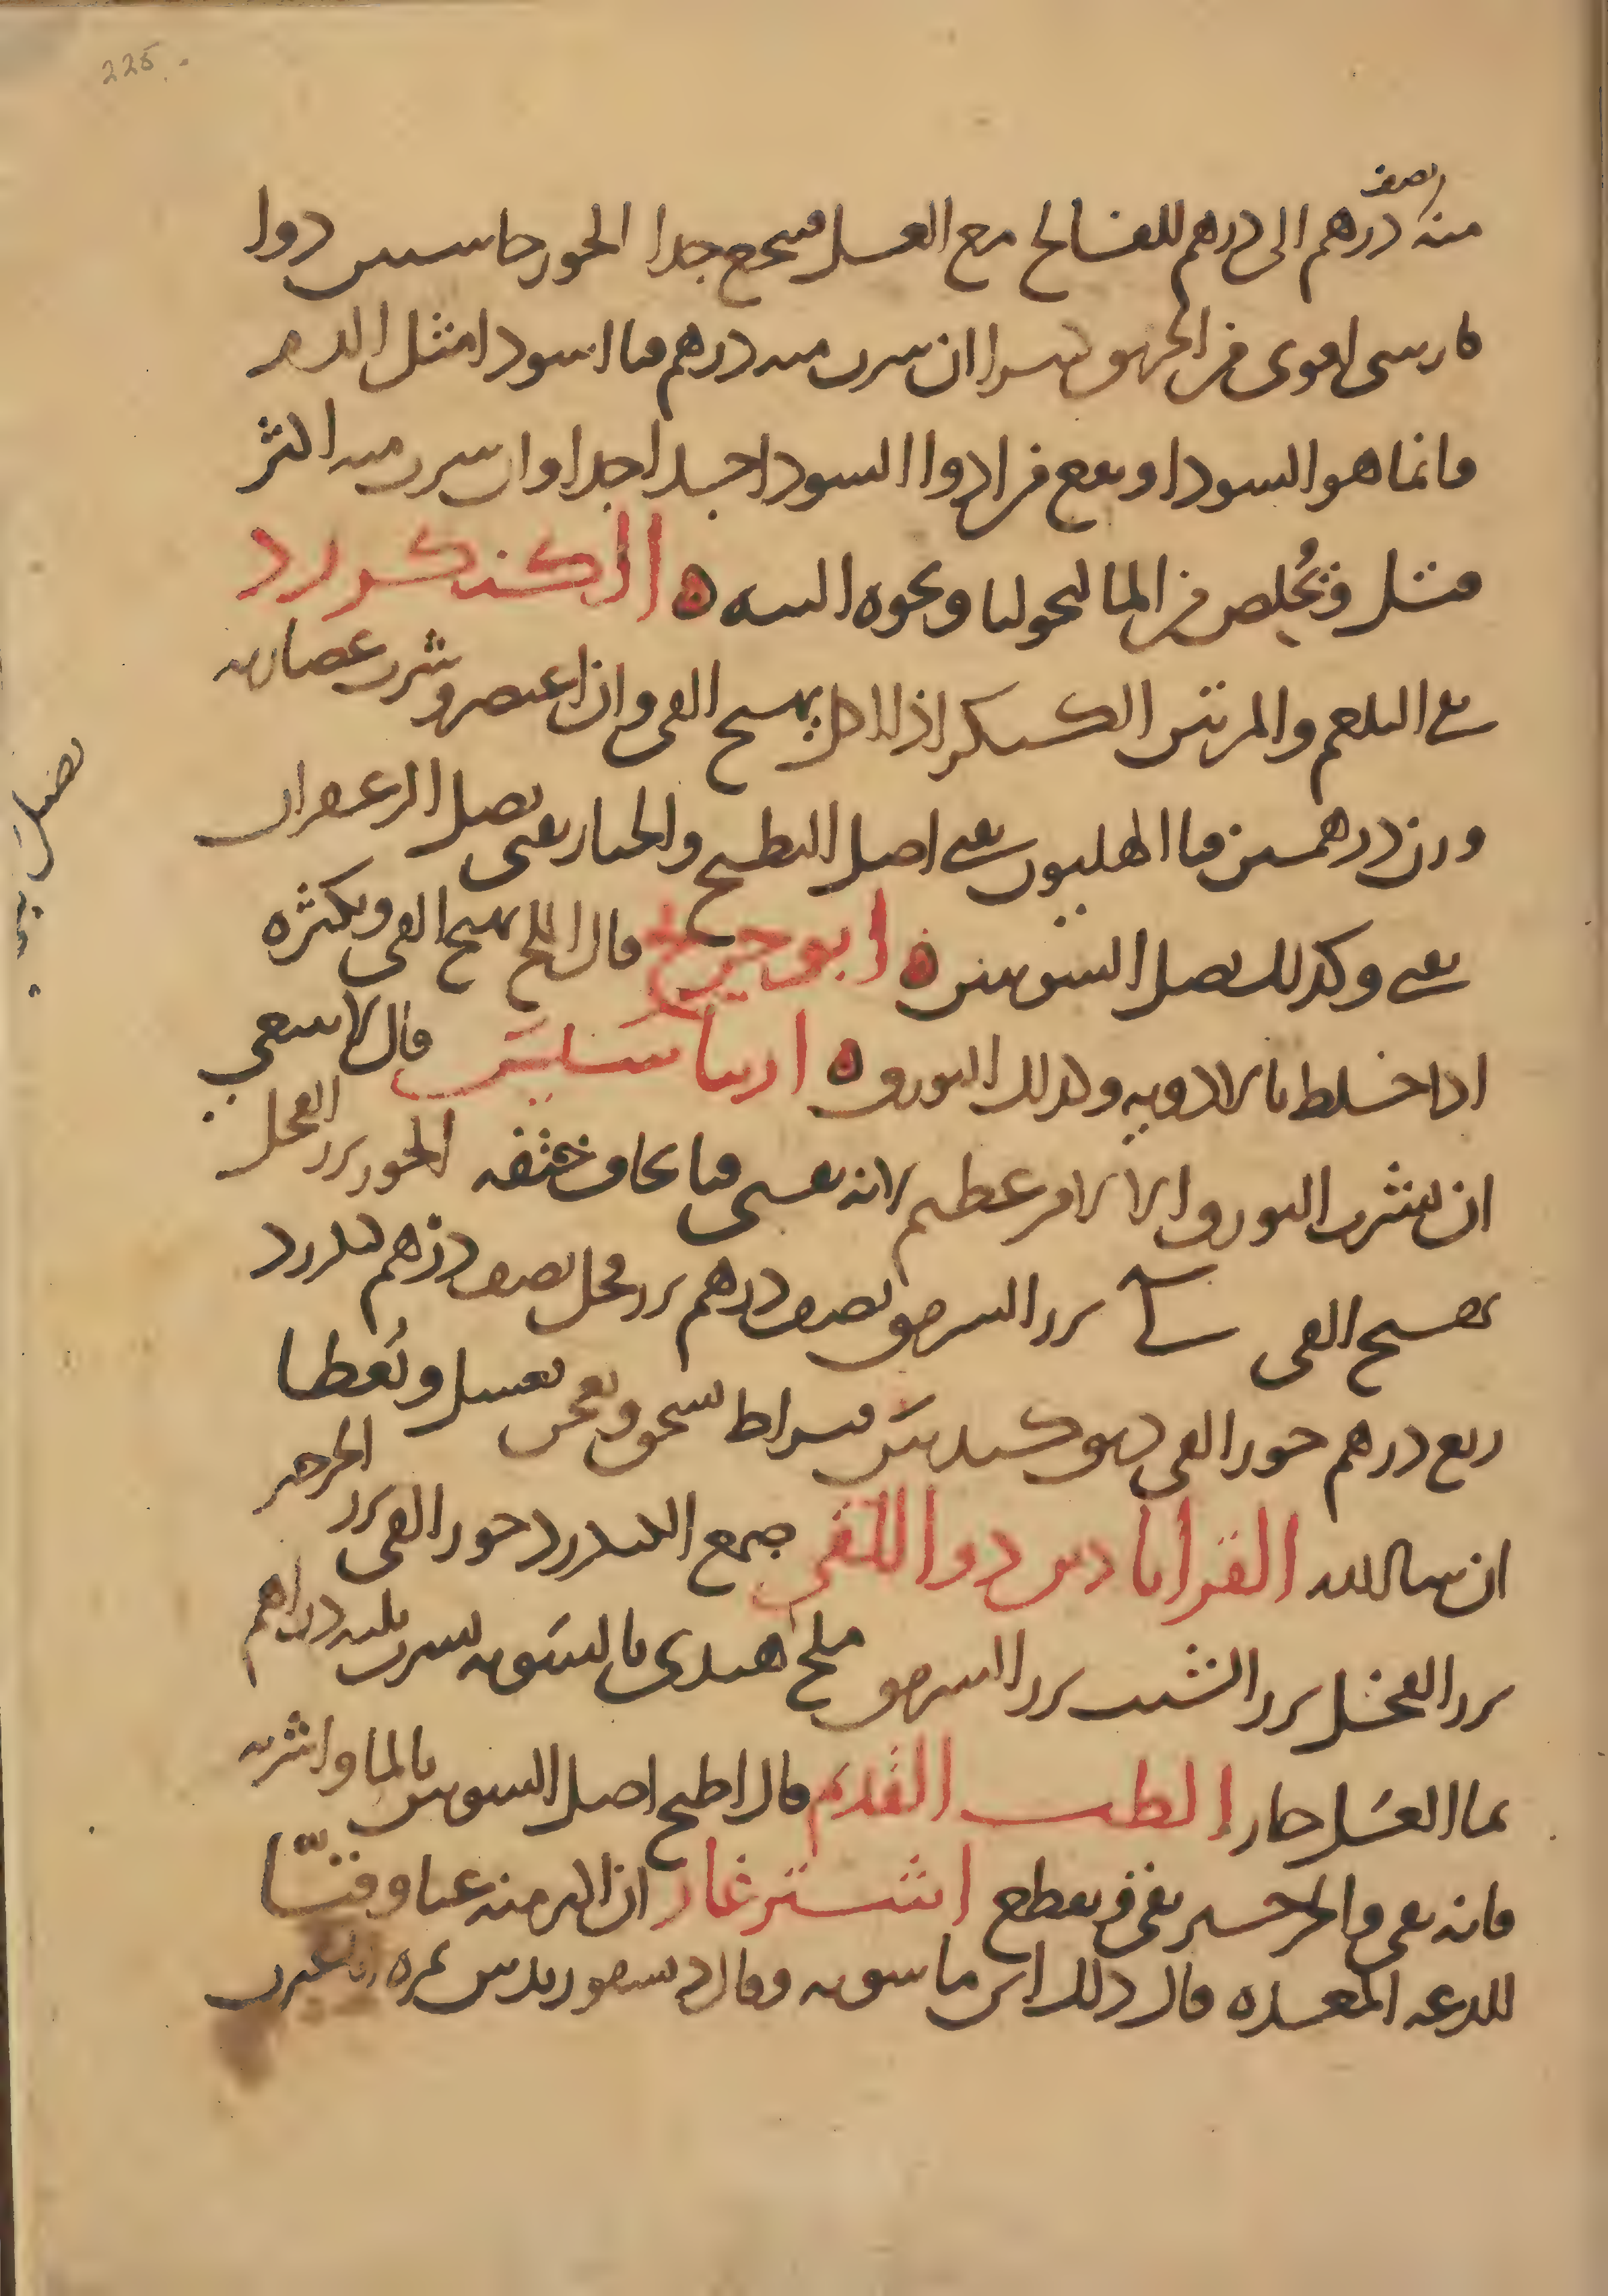 225
نصف
منه درهم الى درهم للفالج مع العسل فينجع جدا الخوز جاسيس دوا
فارسي اقوى من الخربق يسرا ان شرب منه درهم قيا اسودا مثل الدم
فانما هو السودا وينفع من ادوا السودا جيدا جدا وان شرب منه اكثر
قتل ويخلص من المالنخوليا ونحوه البته ه الكنكرزد
يقي البلغم والمرتين الكنكر اذا اكل يهيج القي وان اعتصر وشرب عصارته
وزن درهمين قيا الهليون يقي اصل البطيخ والخيار يقي بصل الزعفران
يقي وكذلك بصل السوسن ه ابو جريج قال الملح يهيج القي ويكثره
اذا خلط بالادوية وكذلك البورق ه ارساسيس قال لا ينبغي
ان يشرب البورق الا لامر عظيم لانه يقيي قيا يخاف خنقه الخوز بزر الفجل
يهيج القي بزر السرمق نصف درهم بزر فجل نصف درهم كنكرزد
ربع درهم جوز القي دبق كبيدس قيراط يسحق ويعجن بعسل ويعطا
ان شا الله القراباذين دوا للقي صمغ الكنكرزد جوز القي بزر الجرجير
بزر الفجل بزر الشبت بزر السرمق ملح هندي بالسوية يشرب ثلثة دراهم
بما العسل حار الطب القديم قال اطبخ اصل السوس بالما واشربه
فانه يقي والجرجير يقي ويقطع اشترغاز ان اكثر منه غثا وقيا
للذعه المعده قال ذلك ابن ماسويه وقال ديسقوريدس ثمره